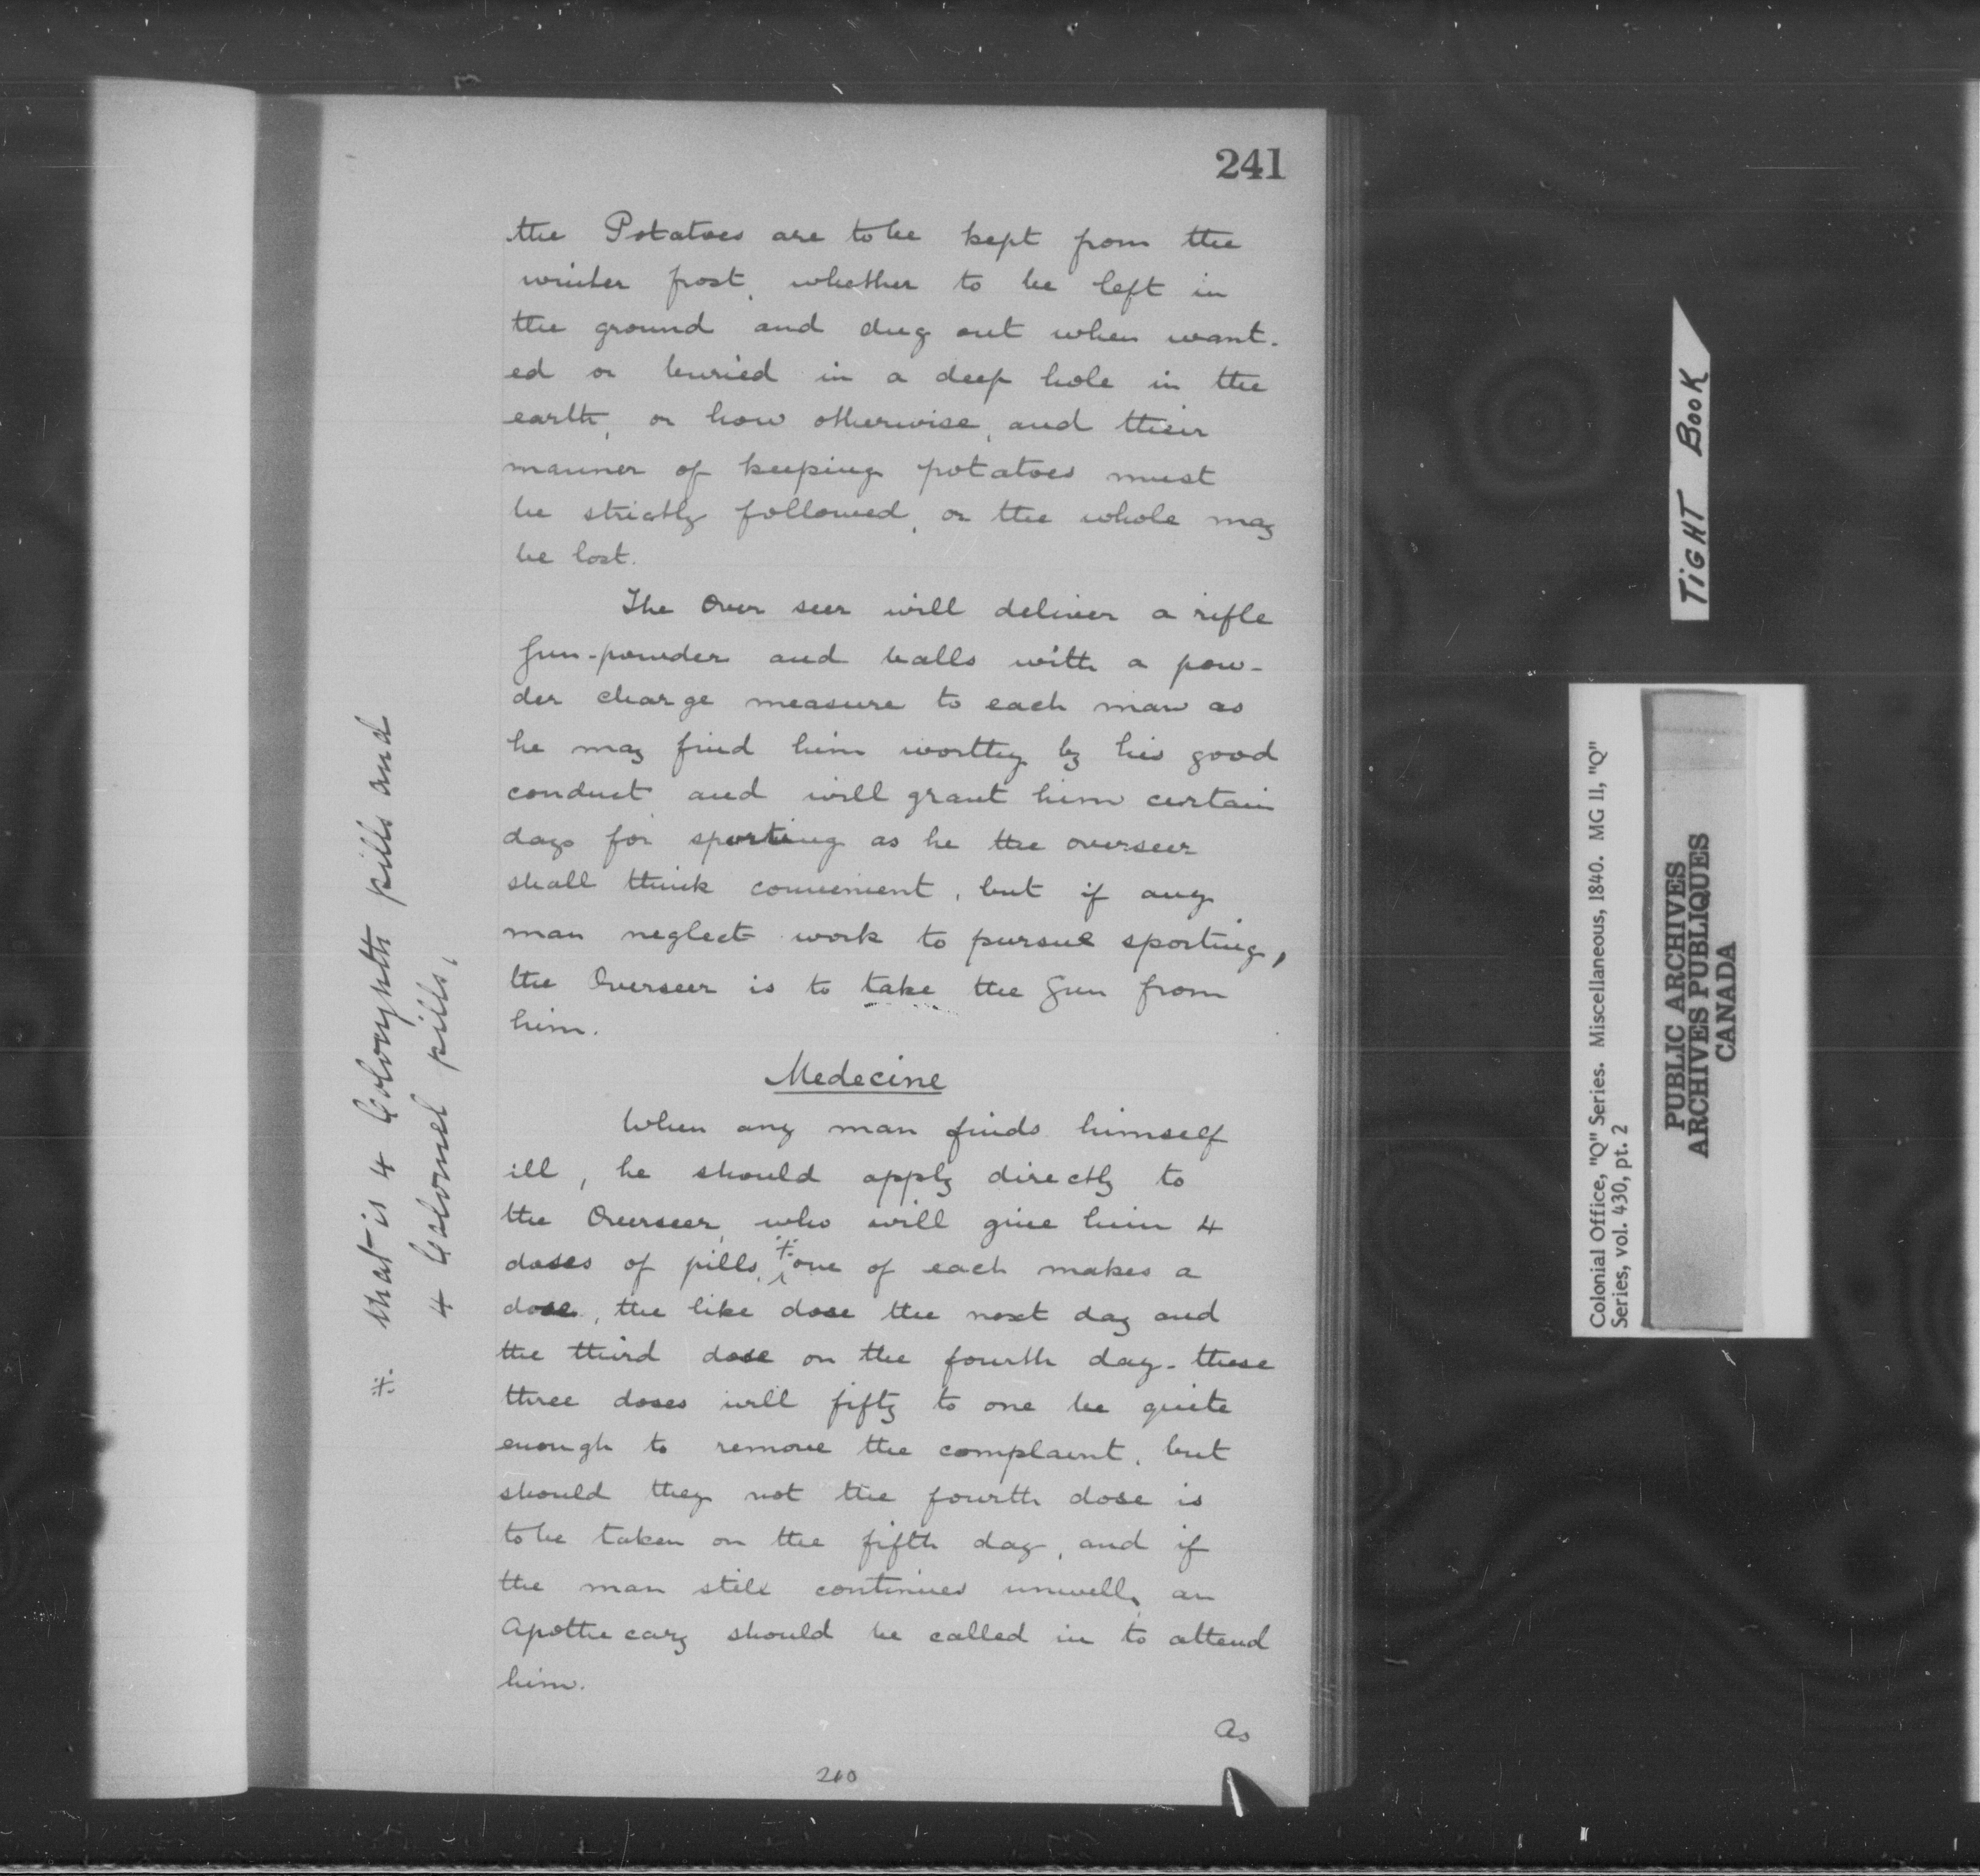 241
the Potatoes are to be kept from the
winter frost, whether to be left in
the ground and dug out when want-
ed or buried in a deep hole in the
earth, or how otherwise, and their
manner of keeping potatoes must
be strictly followed, or the whole may
be lost.
The Over seer will deliver a rifle
Gun-powder and balls with a pow-
der charge measure to each man as
he may find him worthy by his good
conduct and will grant him certain
days for sporting as he the overseer
shall think convenient, but if any
man neglect work to pursue sporting,
the Overseer is to take the Gun from
him.
Medecine
When any man finds himself
ill, he should apply directly to
the Overseer, who will give him 4
doses of pills, ⁒ one of each makes a
dose, the like dose the next day and
the third dose on the fourth day - these
three doses will fifty to one be quite
enough to remove the complaint, but
should they not the fourth dose is
to be taken on the fifth day, and if
the man still continues unwell, an
Apothecary should be called in to attend
him.
As
210
⁒ that is 4 Colocynth pills and
4 Calomel pills,
TIGHT BOOK
Colonial Office, "Q" Series. Miscellaneous, 1840. MG 11, "Q"
Series, vol. 430, pt. 2
PUBLIC ARCHIVES
ARCHIVES PUBLIQUES
CANADA